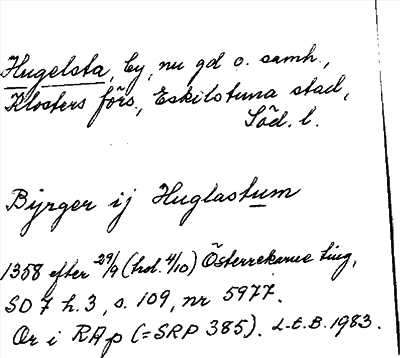 Hugelsta, by, nu gd o. samh.,
Klosters förs., Eskilstuna stad,
Söd. l.
Byrger ij Huglastum
1358 efter 29/9 (trol. 4/10) Österrekarne ting,
SD 7 h. 3, s. 109, nr 5977.
Or i RAp (= SRP 385). L.E.B. 1983.